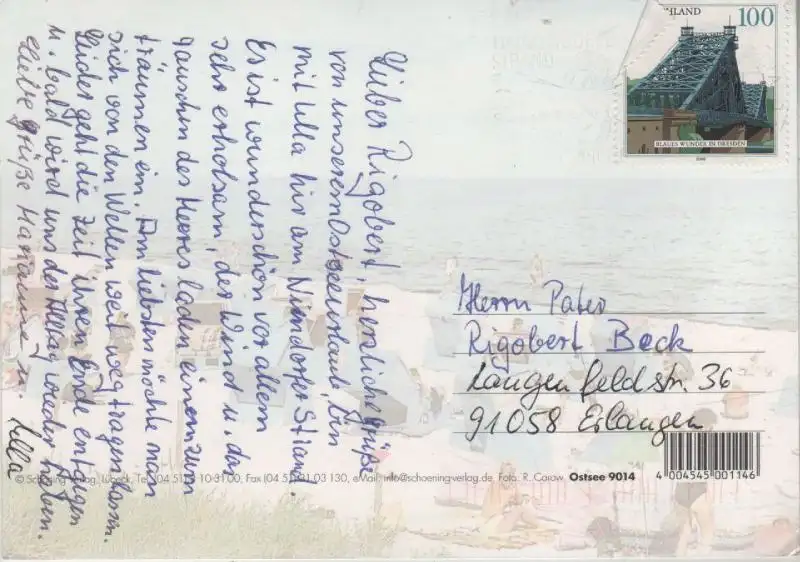 Lieber Rigobert, herzliche Grüße
von unserem Ostseeurlaub. Bin
mit Ulla hir am Niendorfer Strand.
Es ist wunderschön vor allem
sehr erholsam, der Wind u. das
rauschen des Meeres laden einem zum
träumen ein. Am liebsten möchte man
sich von den Wellen weit weg tragen lassen.
Leider geht die Zeit ihrem Ende entgegen
u. bald wird uns der Alltag wieder haben.
Liebe Grüße Marianne u. Ulla
HLAND 100
BLAUES WUNDER IN DRESDEN
2000
STRAND
Herrn Pater
Rigobert Beck
Langenfeldstr. 36
91058 Erlangen
© Schöning Verlag, Lübeck, Tel. (04 51) 3 10-31 00, Fax (04 51) 31 03 130, eMail: info@schoeningverlag.de Foto: R. Carow Ostsee 9014
4 004545 001146